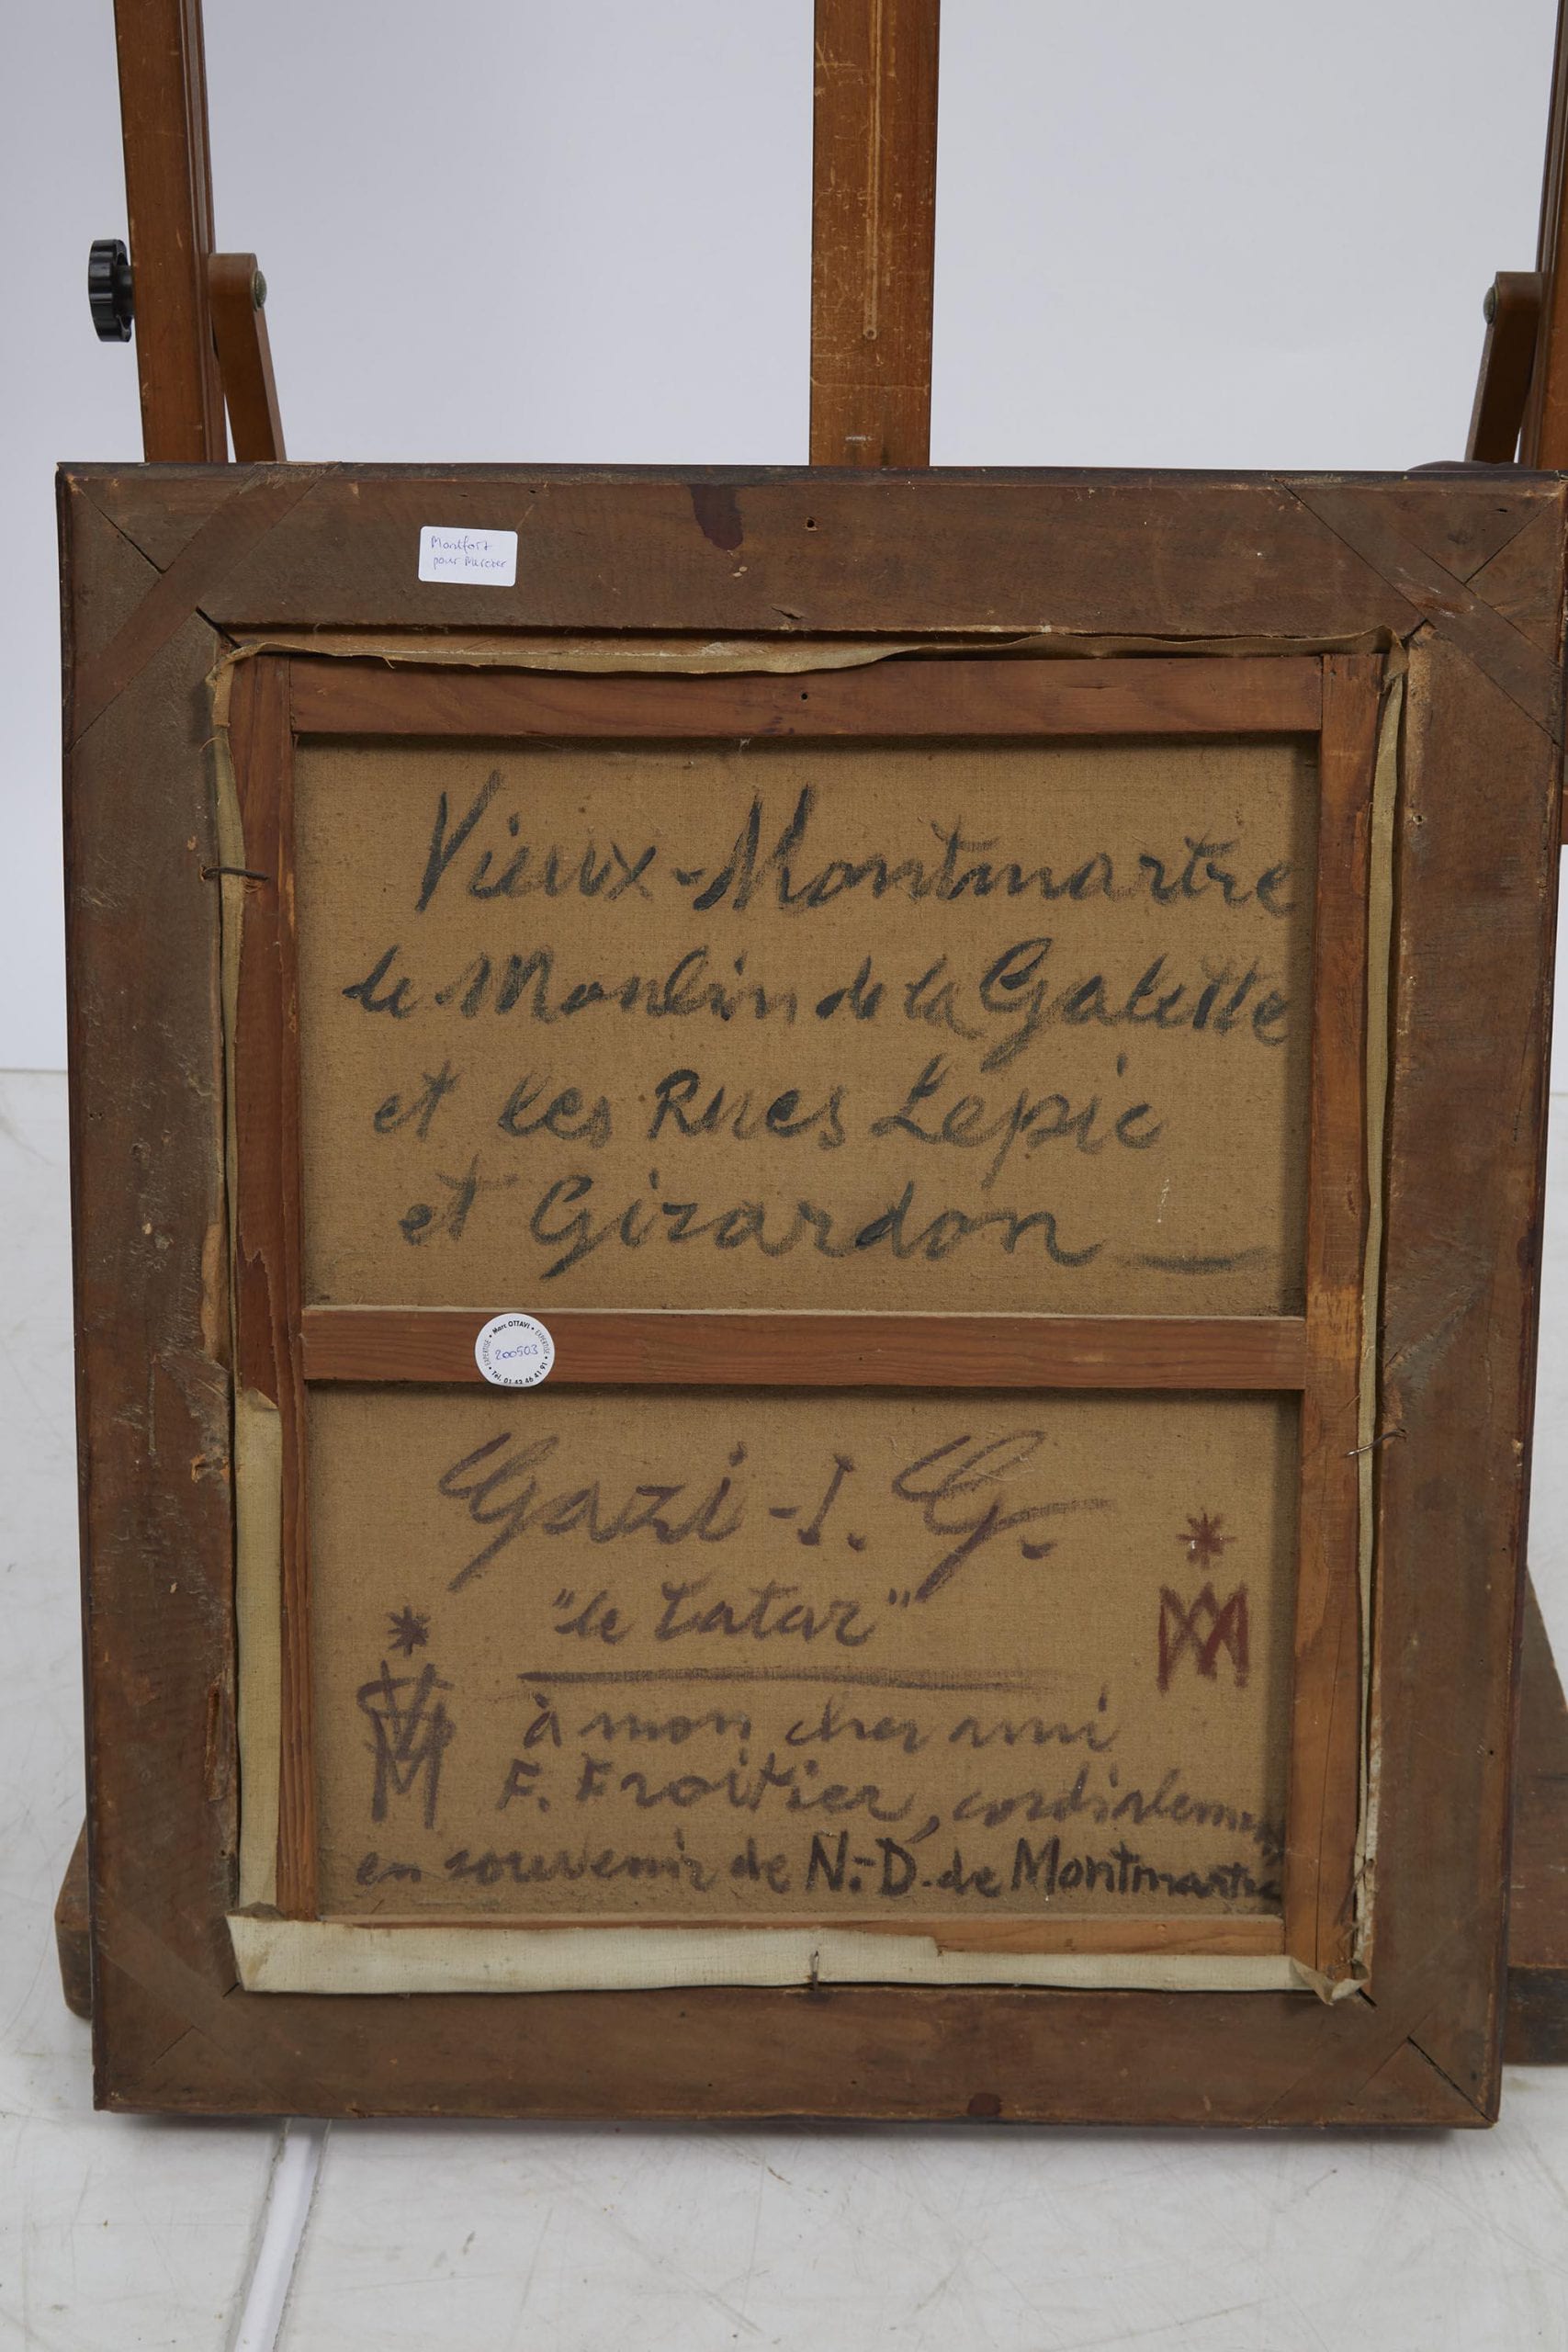 Montfort
pour Mercier
Vieux-Montmartre
le Moulin de la Galette
et les Rues Lepic
et Girardon
• Marc OTTAVI • EXPERTISE • Tél. 01 42 46 41 91 • EXPERTISE
200503
Gazi-I. G.
"le Tatar"
à mon cher ami
F. Froitier, cordialement
en souvenir de N.-D. de Montmartre